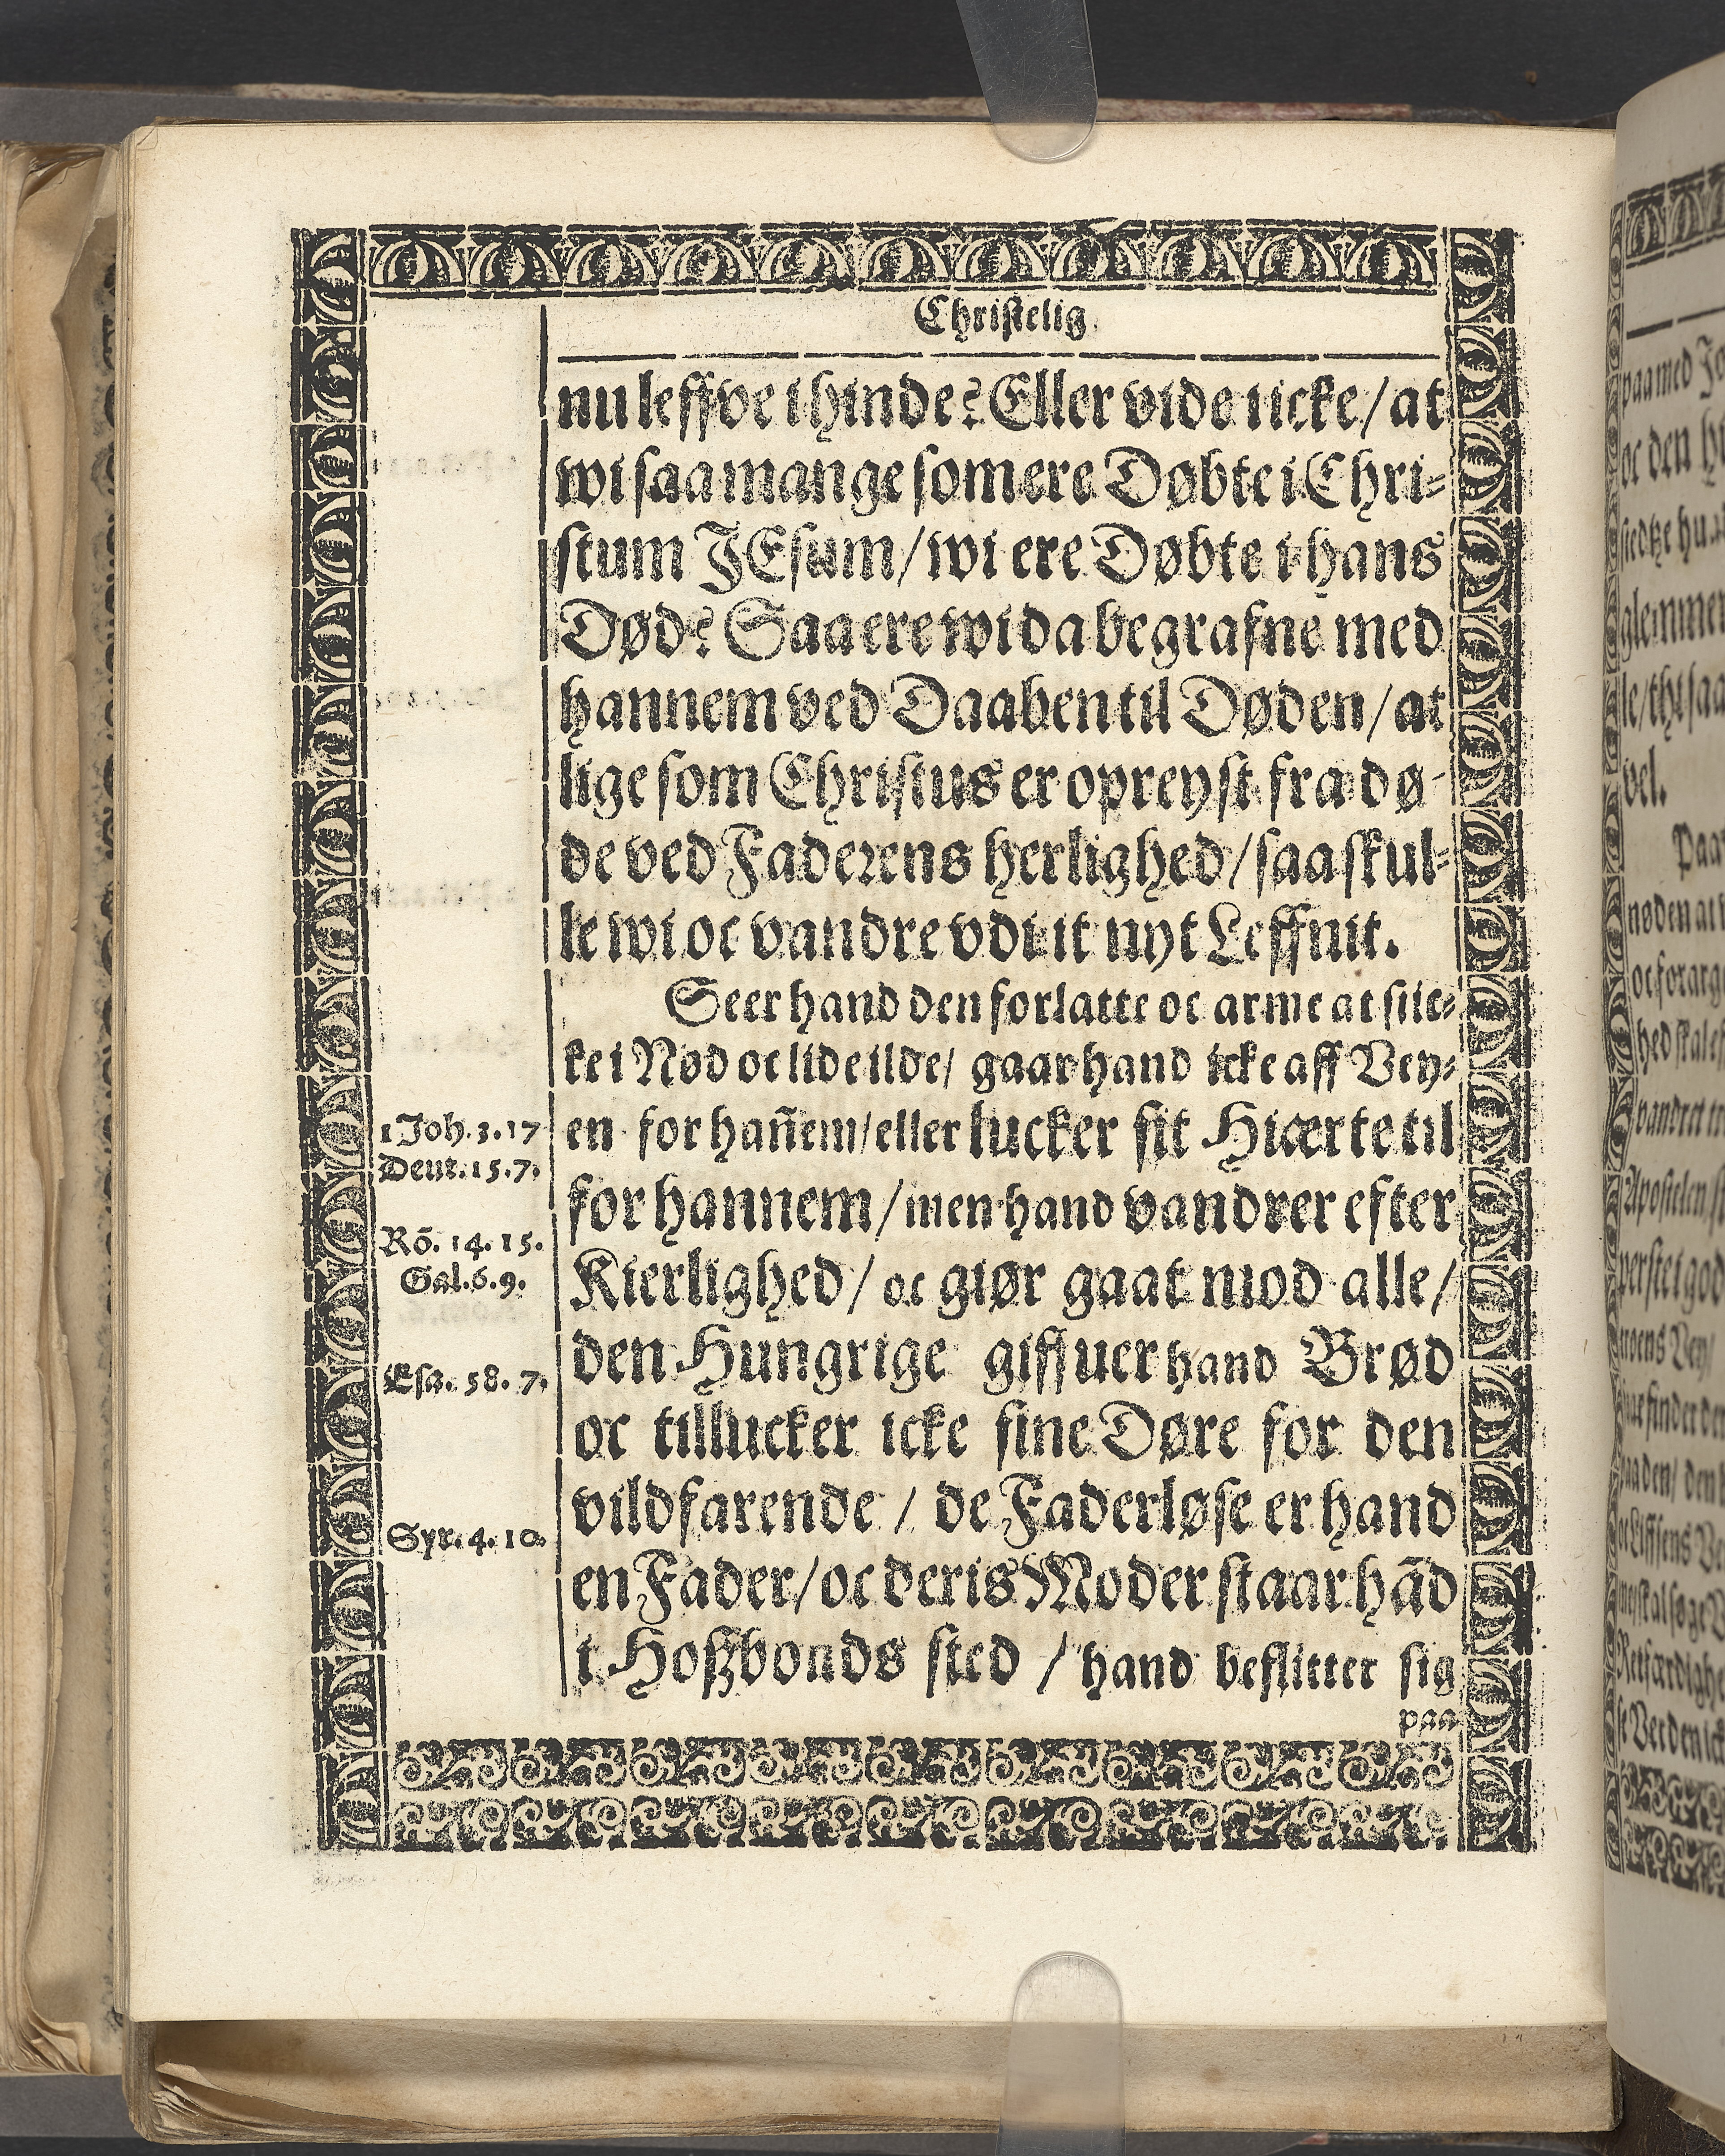 Christelig
nu leffve i hinde? Eller vide icke/ at
wi saa mange som ere Døbte i Chri-
stum JEsum/ wi ere Døbte i hans
Død? Saa ere wi da begrafne med
hannem ved Daaben til Døden/ at
lige som Christus er opreyst fra dø-
de ved Faderens herlighed/ saa skul-
le wi oc vandre vdi it nyt Leffnit.
Seer hand den forlatte oc arme at stic-
ke i Nød oc lide ilde/ gaar hand icke aff Vey-
en for hañem/ eller lucker sit Hiærte til
for hannem/ men hand vandrer efter
Kierlighed/ oc giør gaat mod alle/
den Hungrige giffuer hand Brød
oc tillucker icke sine Døre for den
vildfarende / de Faderløse er hand
en Fader/ oc deris Moder staar hād
i Hoßbonds sted / hand beflitter sig
paa
1 Joh. 3. 17
Deut. 15. 7.
Rō. 14. 15.
Gal. 6. 9.
Esa. 58. 7.
Syr. 4. 10.